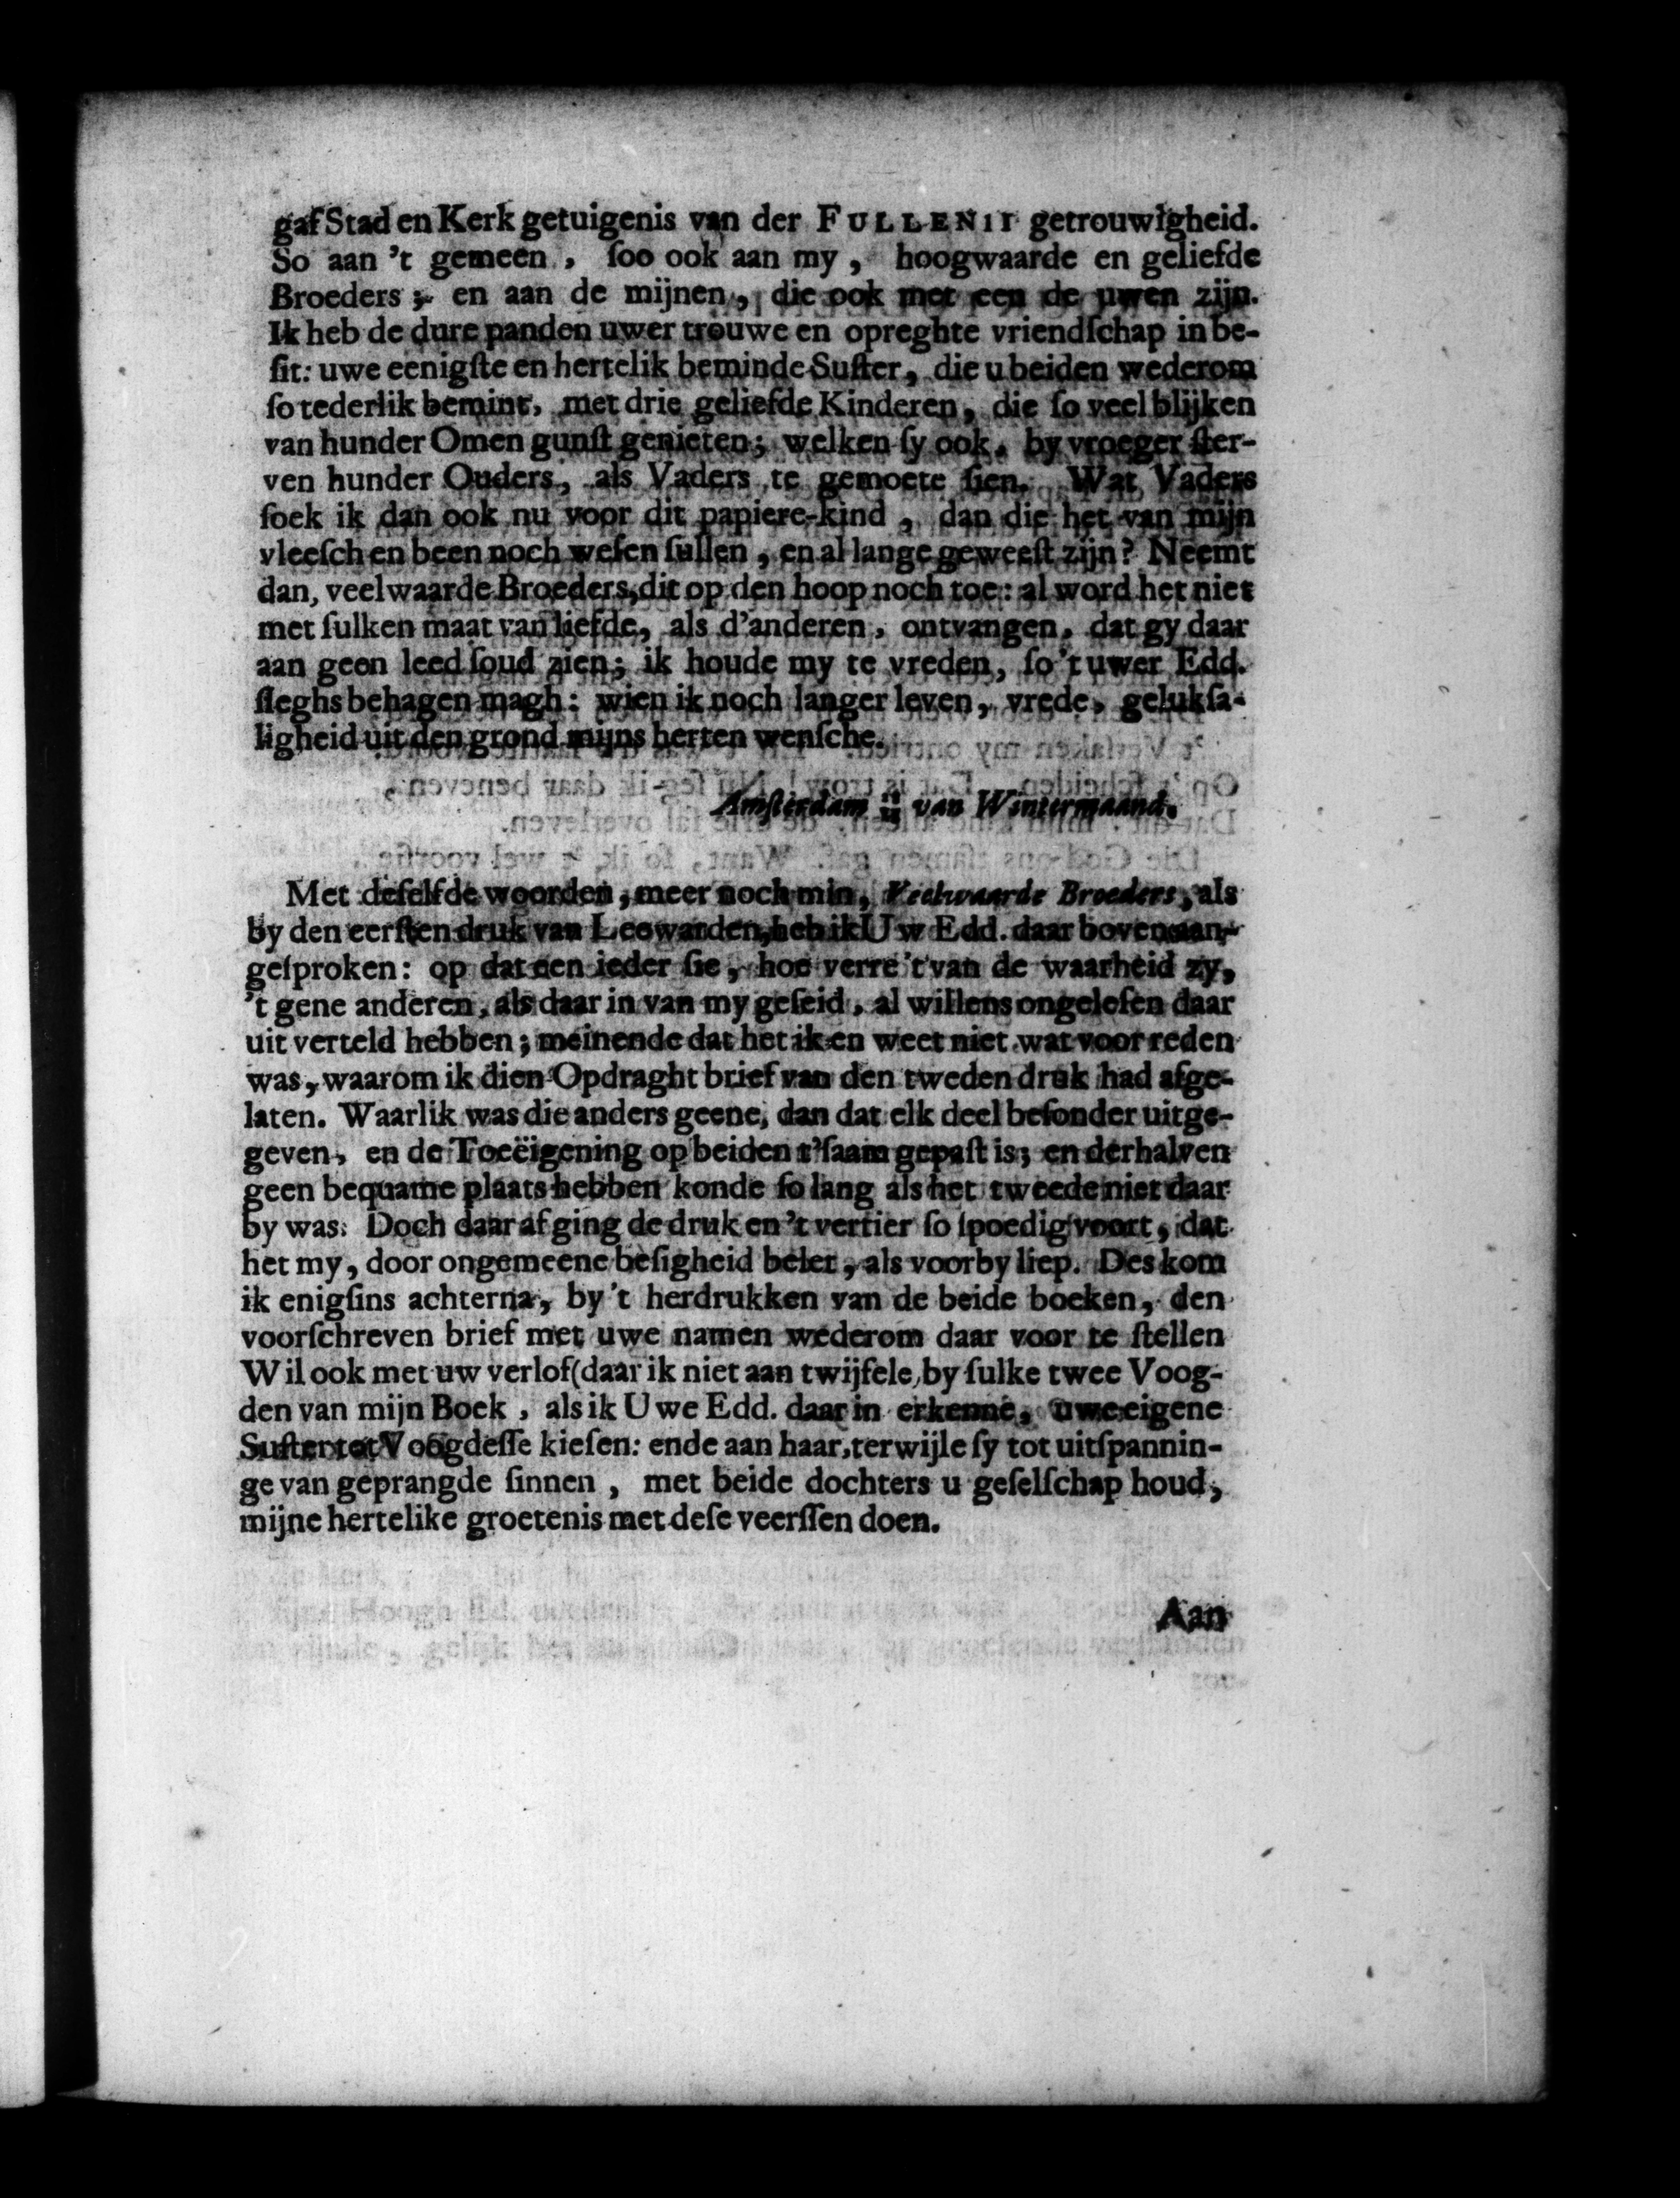 gaf Stad en Kerk getuigenis van der FULLENII getrouwigheid.
So aan 't gemeen, ſoo ook aan my, hoogwaarde en geliefde
Broeders; en aan de mijnen, die ook met een de uwen zijn.
Ik heb de dure panden uwer trouwe en opreghte vriendſchap in be-
ſit: uwe eenigſte en hertelik beminde Suſter, die u beiden wederom
ſo tederlik bemint, met drie geliefde Kinderen, die ſo veel blijken
van hunder Omen gunſt genieten; welken ſy ook, by vroeger ſter-
ven hunder Ouders, als Vaders te gemoete ſien. Wat Vaders
ſoek ik dan ook nu voor dit papiere-kind, dan die het van mijn
vleeſch en been noch weſen ſullen, en al lange geweeſt zijn? Neemt
dan, veelwaarde Broeders, dit op den hoop noch toe: al word het niet
met ſulken maat van liefde, als d'anderen, ontvangen, dat gy daar
aan geen leed ſoud zien; ik houde my te vreden, ſo 't uwer Edd.
ſleghs behagen magh: wien ik noch langer leven, vrede, gelukſa-
ligheid uit den grond mijns herten wenſche.
Amſterdam van Wintermaand.
Met deſelfde woorden, meer noch min, Veelwaarde Broeders, als
by den eerſten druk van Leewarden, heb ik Uw Edd. daar boven aan-
geſproken: op dat een ieder ſie, hoe verre 't van de waarheid zy,
't gene anderen, als daar in van my geſeid, al willens ongeleſen daar
uit verteld hebben; meinende dat het ik en weet niet wat voor reden
was, waarom ik dien Opdraght brief van den tweden druk had afge-
laten. Waarlik was die anders geene, dan dat elk deel beſonder uitge-
geven, en de Toeëigening op beiden t'ſaam gepaſt is; en derhalven
geen bequame plaats hebben konde ſo lang als het tweede niet daar
by was. Doch daar af ging de druk en 't vertier ſo ſpoedig voort, dat
het my, door ongemeene beſigheid belet, als voorby liep. Des kom
ik enigſins achterna, by 't herdrukken van de beide boeken, den
voorſchreven brief met uwe namen wederom daar voor te ſtellen
Wil ook met uw verlof (daar ik niet aan twijfele, by ſulke twee Voog-
den van mijn Boek, als ik Uwe Edd. daar in erkenne, uwe eigene
Suſter tot Voogdeſſe kieſen: ende aan haar, terwijle ſy tot uitſpannin-
ge van geprangde ſinnen, met beide dochters u geſelſchap houd,
mijne hertelike groetenis met deſe veerſſen doen.
Aan